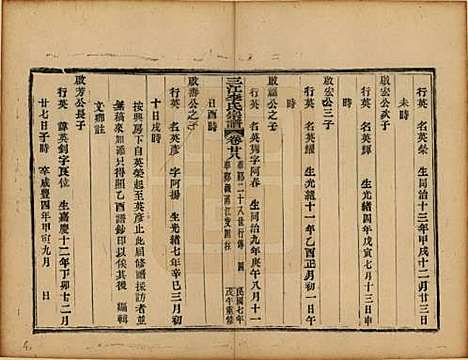 未時
行英 名英榮 生同治十三年甲戌十二月廿三日
啟宏公弍子
行英 名英輝 生光緒四年戊寅七月十三日
啟宏公三子
行英 名英 生光緒十一年乙酉正月初一日午
啟福公之子
行英 名英 字阿春 生同治九年庚午八月十一
三江李氏宗譜 卷廿八
民國七年
戊午重修
日酉時
啟壽公之子
行英 名英彥 字阿揚 生光緒七年辛巳三月初
十日戌時
按興添下自英榮起至英彥止此届修譜採訪者並
無稿來如添只得照乙酉老譜鈔印以俟其後 編輯
文聯註
啟芳公長子
行英 諱英釗字良位 生嘉慶十二年丁卯十二月
廿七日子時 卒咸豐四年甲寅九月 日